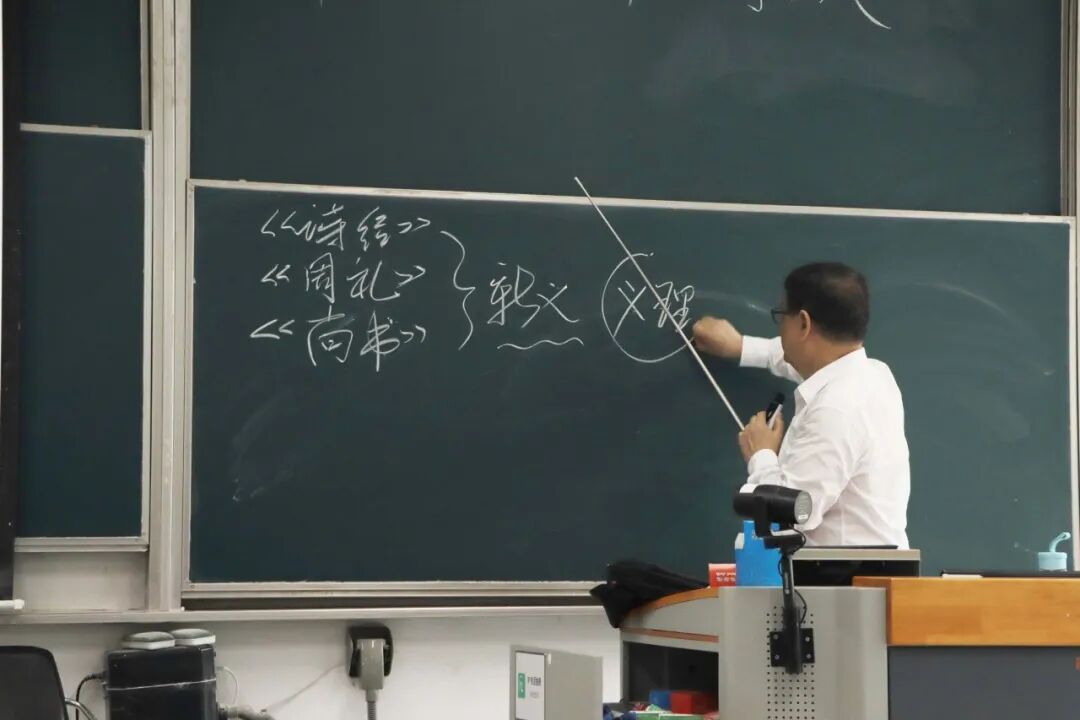 《诗经》
《周礼》
《尚书》
新义
义理